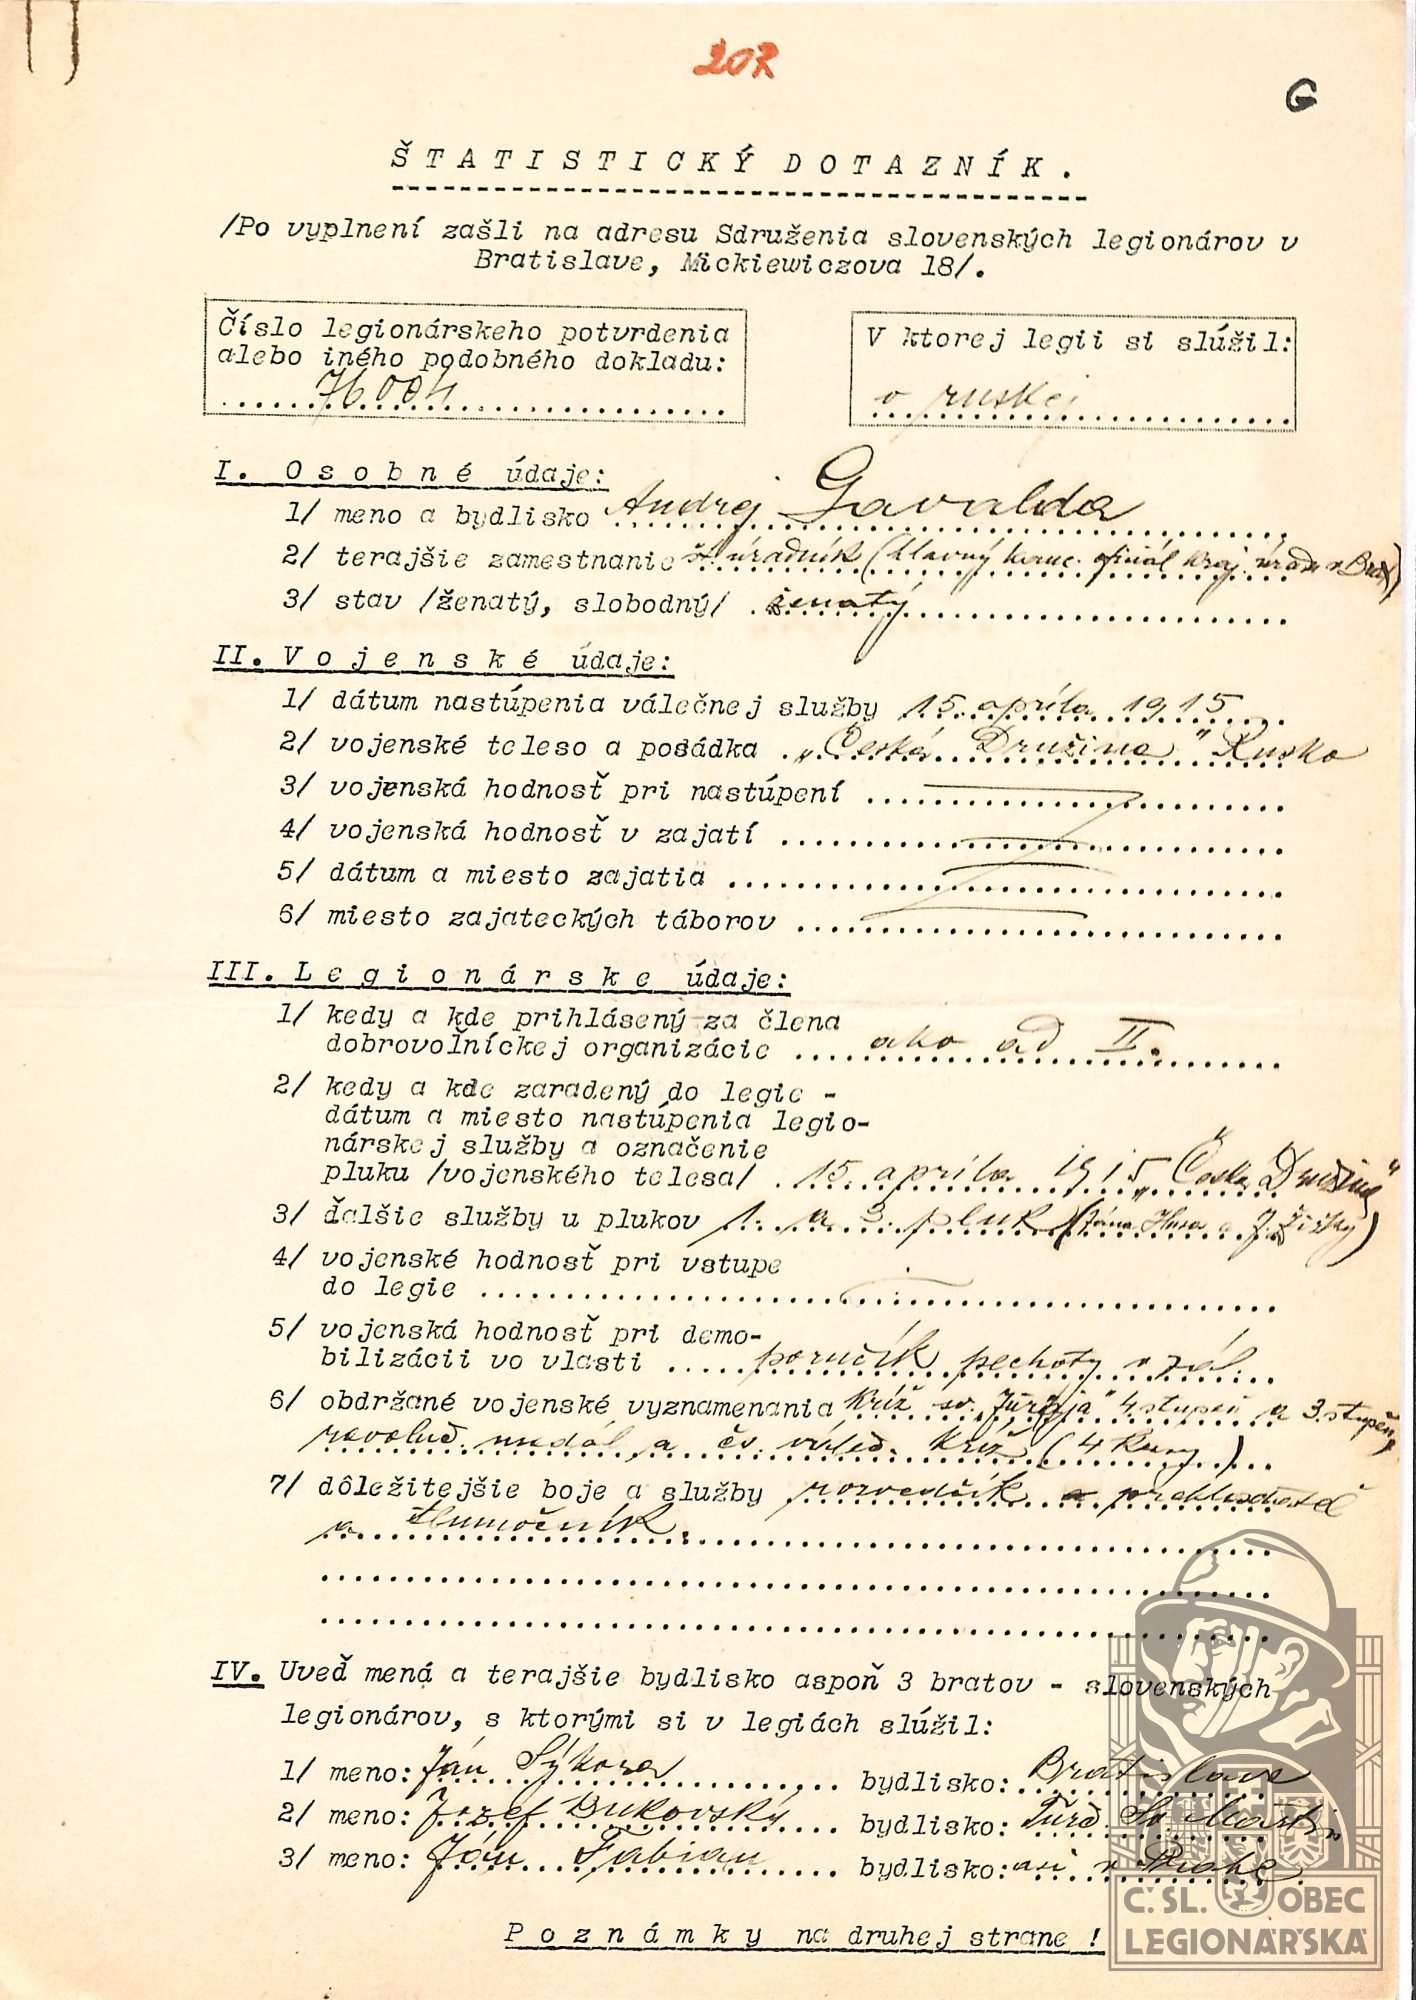 207
G
ŠTATISTICKÝ DOTAZNÍK.
/Po vyplnení zašli na adresu Sdruženia slovenských legionárov v
Bratislave, Mickiewiczova 18/.
Číslo legionárskeho potvrdenia
alebo iného podobného dokladu:
76.004
V ktorej legii si slúžil:
v ruskej
I. Osobné údaje:
1/ meno a bydlisko Andrej Gavalda
2/ terajšie zamestnanie št. úradník (hlavný kanc. oficiál kraj. úradu v Brat)
3/ stav /ženatý, slobodný/ ženatý
II. Vojenské údaje:
1/ dátum nastúpenia válečnej služby 15. apríla 1915
2/ vojenské teleso a posádka „Česká Družina" Rusko
3/ vojenská hodnosť pri nastúpení
4/ vojenská hodnosť v zajatí
5/ dátum a miesto zajatia
6/ miesto zajateckých táborov
III. Legionárske údaje:
1/ kedy a kde prihlásený za člena
dobrovoľníckej organizácie ako ad II.
2/ kedy a kde zaradený do legie -
dátum a miesto nastúpenia legio-
nárskej služby a označenie
pluku /vojenského telesa/ 15. apríla 1915 „Česká Družina"
3/ ďalšie služby u plukov 1. a 3. pluk (Jána Husa a J. Žižky)
4/ vojenské hodnosť pri vstupe
do legie
5/ vojenská hodnosť pri demo-
bilizácii vo vlasti poručík pechoty v zál.
6/ obdržané vojenské vyznamenania Kríž sv. „Jürgja" 4. stupeň a 3. stupeň,
revoluč. medal a čs. váleč. kríž (4 )
7/ dôležitejšie boje a služby rozvedčík prekladateľ
a tlumočník.
IV. Uveď mená a terajšie bydlisko aspoň 3 bratov - slovenských
legionárov, s ktorými si v legiách slúžil:
1/ meno: Ján Sýkora bydlisko: Bratislave
2/ meno: Jozef Bukovský bydlisko: Turč. Sv. Martin
3/ meno: Ján Fabian bydlisko: asi v Prahe
Poznámky na druhej strane !
Č.SL. OBEC
LEGIONÁŘSKÁ